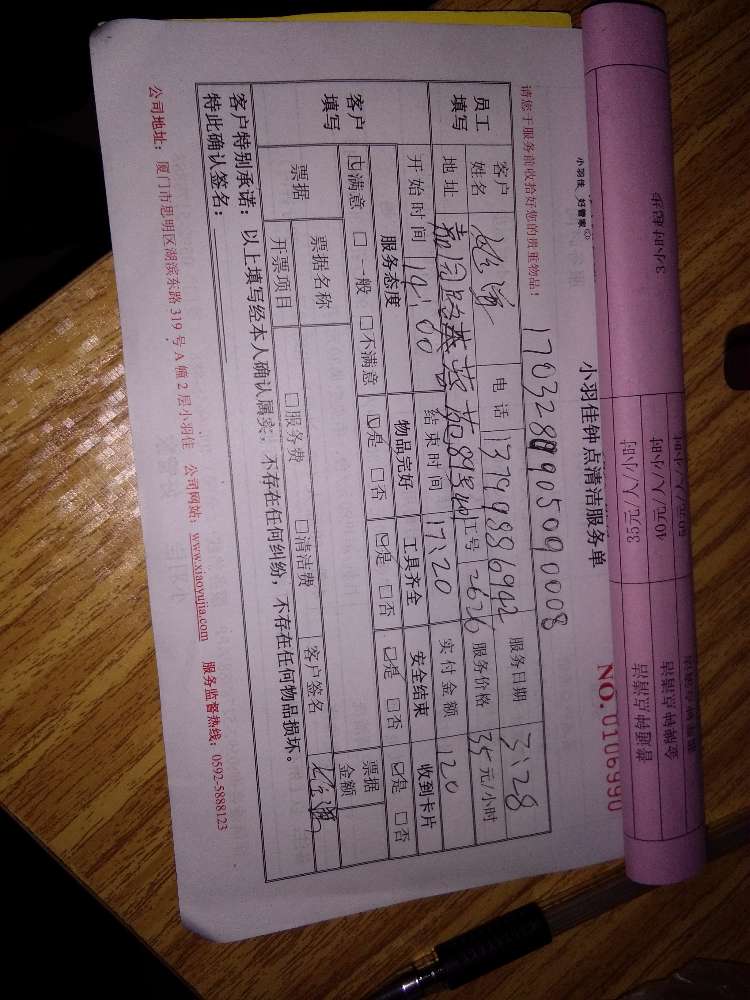 小羽佳 好管家
小羽佳钟点清洁服务单
NO.0106990
请您于服务前收拾好您的贵重物品!
员工填写
客户姓名
电话 13799886942
服务日期 3.28
地址
工号 2626
服务价格 35元/小时
开始时间 14:00
结束时间 17:20
实付金额 120
客户填写
服务态度
物品完好
工具齐全
安全结束
收到卡片
☑满意 □一般 □不满意
☑是 □否
☑是 □否
☑是 □否
☑是 □否
票据
票据名称
票据金额
开票项目
□服务费 □清洁费
客户签名
客户特别承诺:以上填写经本人确认属实,不存在任何纠纷,不存在任何物品损坏。
特此确认签名:
公司地址:厦门市思明区湖滨东路319号A幢2层小羽佳 公司网站:www.xiaoyujia.com 服务监督热线:0592-5888123
40元/人/小时
35元/人/小时